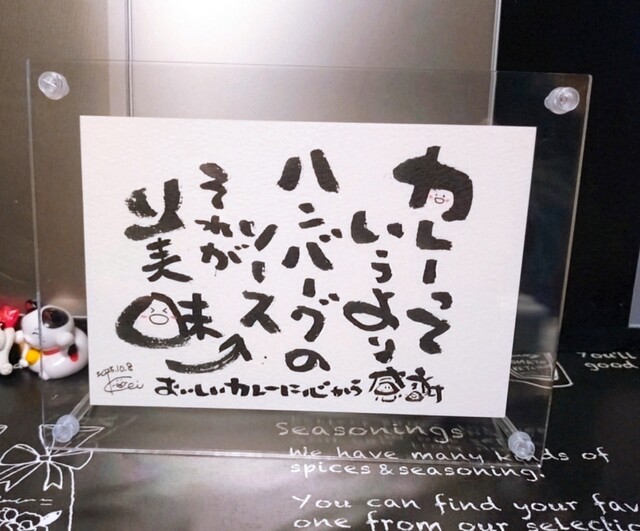 カレーって
いうより
ハンバーグの
ソース
それが
美味
おいしいカレーに心から感謝
Seasonings
We have many kinds of
spices & seasoning.
You can find your fav
one from our selection
You'll
good